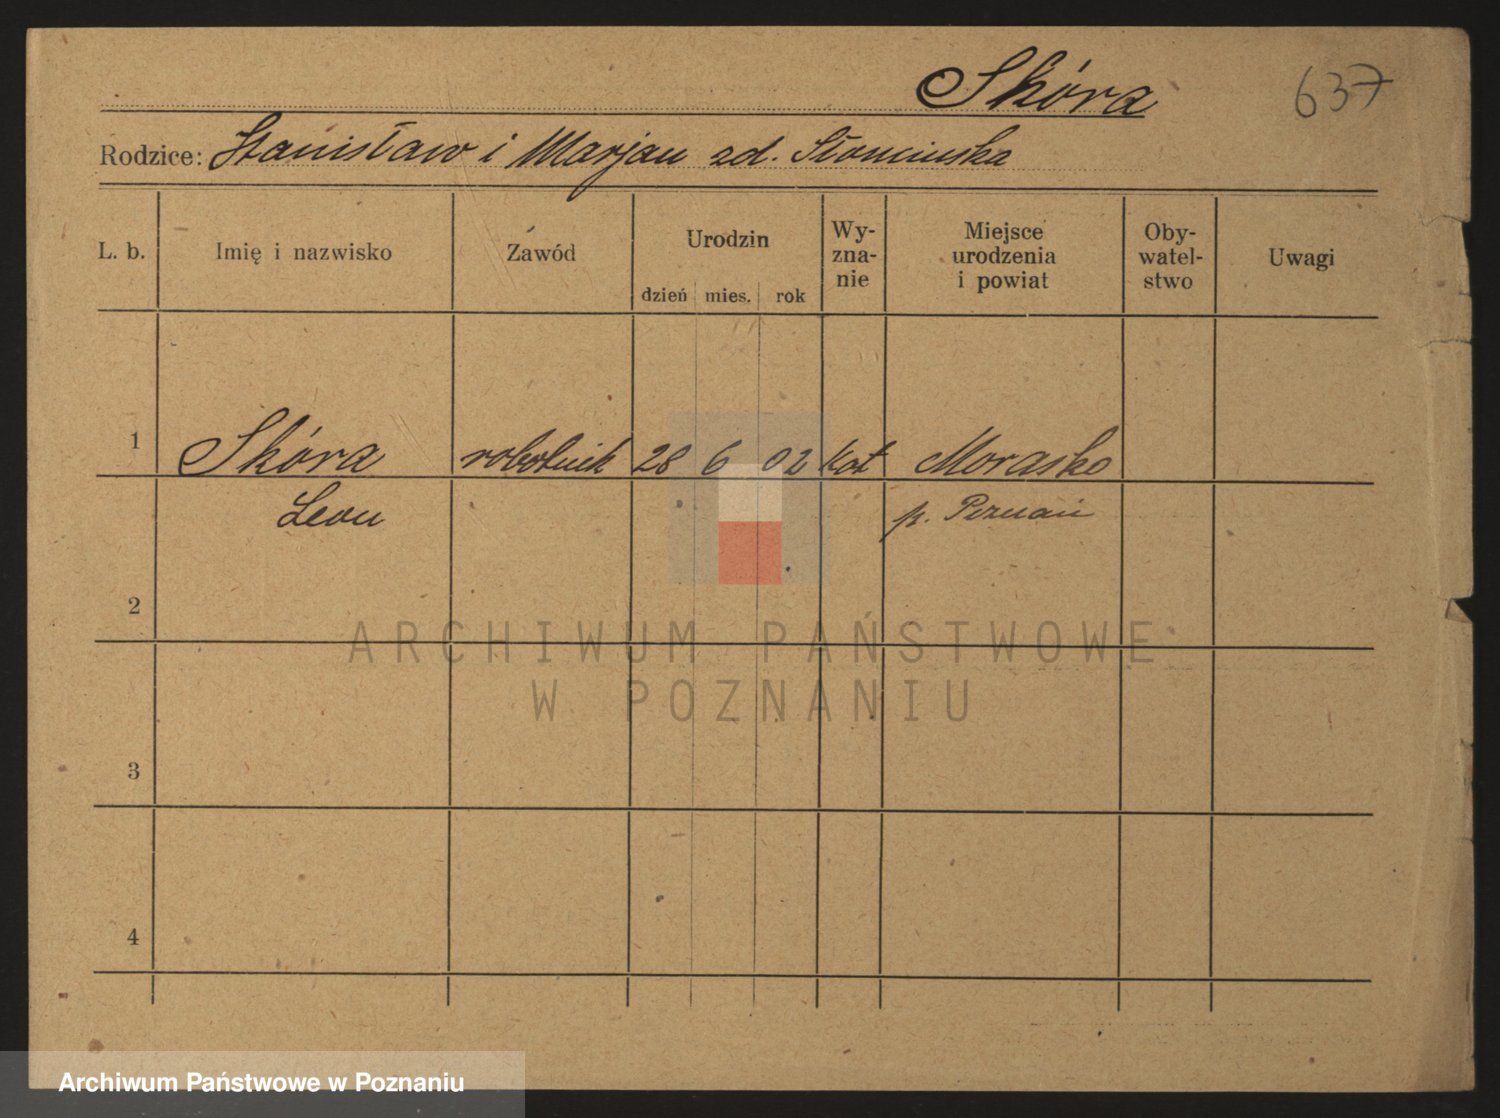 Skóra 637
Rodzice: Stanisław i Marjan zd. Słomińska
L. b. Imię i nazwisko Zawód Urodzin dzień mies. rok Wy-zna-nie Miejsce urodzenia i powiat Oby-watel-stwo Uwagi
1 Skóra robotnik 28 6 02 kat Morasko
Leon p. Poznań
2
ARCHIWUM PAŃSTWOWE
W POZNANIU
3
4
Archiwum Państwowe w Poznaniu